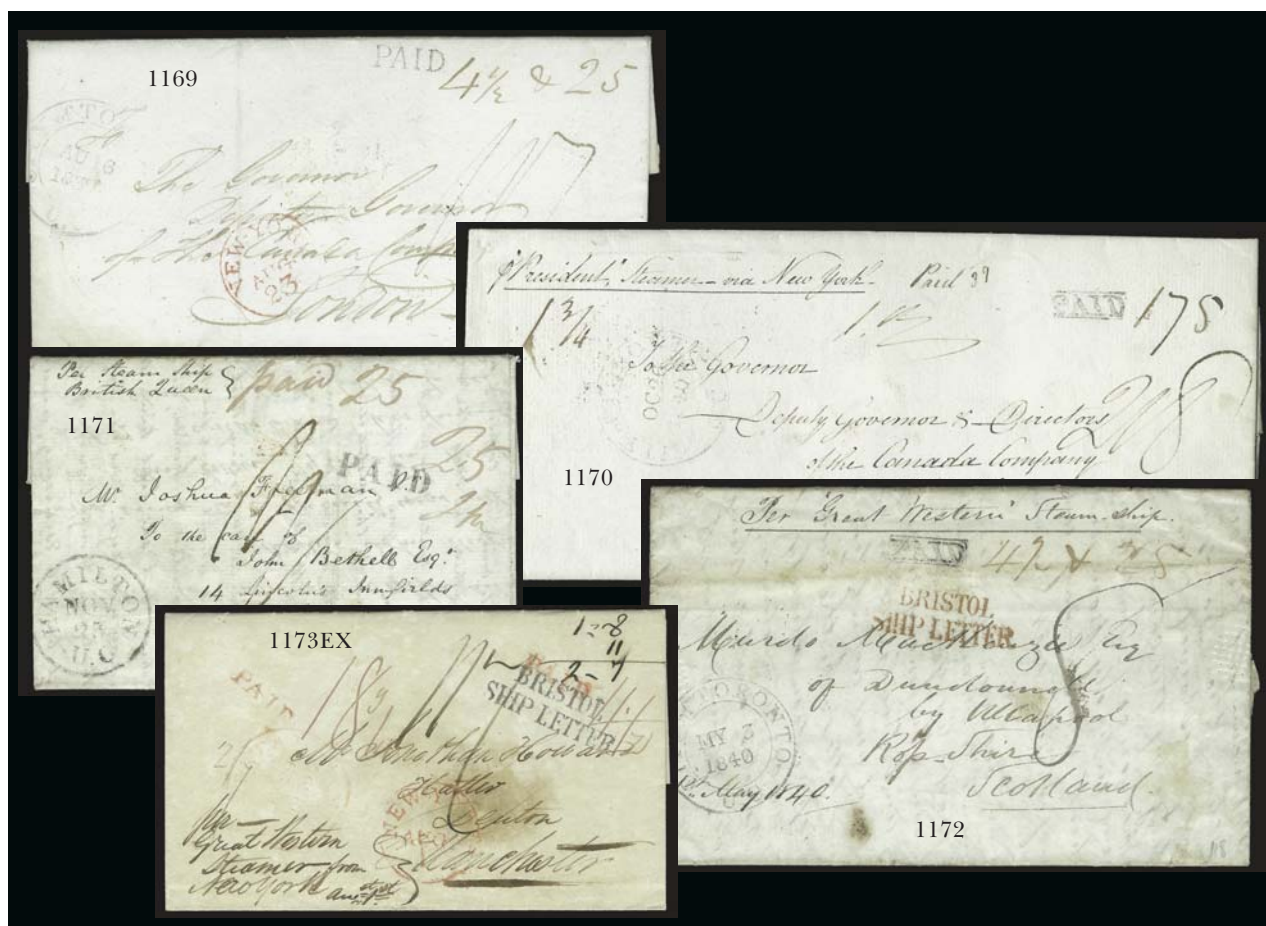 1169
PAID
4 1/2 & 25
AU
The Governor
Deputy Governor
of the Canada
NEW-YORK
23
London
"President" Steamer - via New York. Paid
1 3/4
PAID
To the Governor
OC
Deputy Governor & Directors
of the Canada Company
1170
Per Steam Ship
British Queen
paid 25
1171
25
PAID
Mr. Joshua Freeman
To the care of
John Bethell Esqr.
14 Lincoln's Inn fields
HAMILTON
NOV
U.C
Per "Great Western" Steam-ship.
PAID
BRISTOL
SHIP LETTER
Murdo MacKenzie Esq
of Dundonnell
by Ullapool
Ross-Shire
Scotland.
TORONTO
MY 3
1840
May 1840.
1172
1173EX
1-8
11
2-7
PAID
BRISTOL
SHIP LETTER
Mr Jonathan Howard
Hatter
Denton
Manchester
NEW-YORK
Per
Great Western
Steamer from
New York